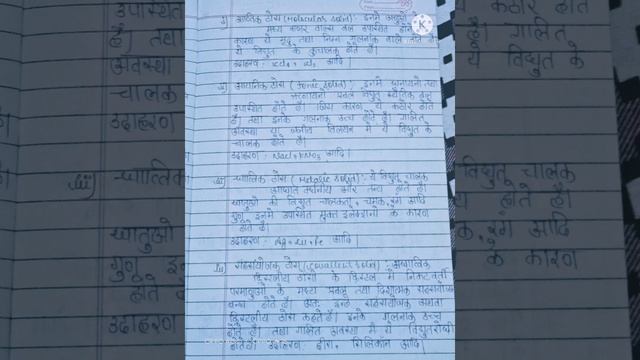 i) आण्विक ठोस (Molecular solid): इनमें अणुओं
मध्य वान्डर वाल्स बल उपस्थित होते
कारण ये मृदु तथा निम्न गलनांक वाले होते हैं
विद्युत के कुचालक होते हैं।
उदाहरण - आदि।
ii) आयनिक ठोस (Ionic solid): इनमें धनायनो तथा
ऋणायनो प्रबल विद्युत स्थैतिक बल
उपस्थित होते हैं। जिस कारण ये कठोर होते
है तथा इनके गलनांक उच्च होते हैं। गलित
अवस्था या जलीय विलयन में ये विद्युत के
चालक होते हैं।
उदाहरण - NaCl, KNO3 आदि।
iii) धात्विक ठोस (Metalic solid): ये विद्युत चालक
आघात वर्धनीय और तन्य होते हैं।
धातुओ की विद्युत चालकता, चमक, रंग आदि
गुण इनमें उपस्थित मुक्त इलेक्ट्रानो के कारण
होते हैं।
उदाहरण - Ag, Cu, Fe आदि।
iv) सहसंयोजक ठोस (Covalent solid): अधात्विक
क्रिस्टलीय ठोसो के क्रिस्टल में निकटवर्ती
परमाणुओं के मध्य प्रबल तथा दिशात्मक सहसंयोजक
बन्ध होते हैं। अतः इन्हे सहसंयोजक अथवा
क्रिस्टलीय ठोस कहते हैं। इनके गलनांक उच्च
होते हैं। तथा गलित अवस्था में ये विद्युतरोधी
होते हैं। उदाहरण - हीरा, सिलिकॉन आदि।